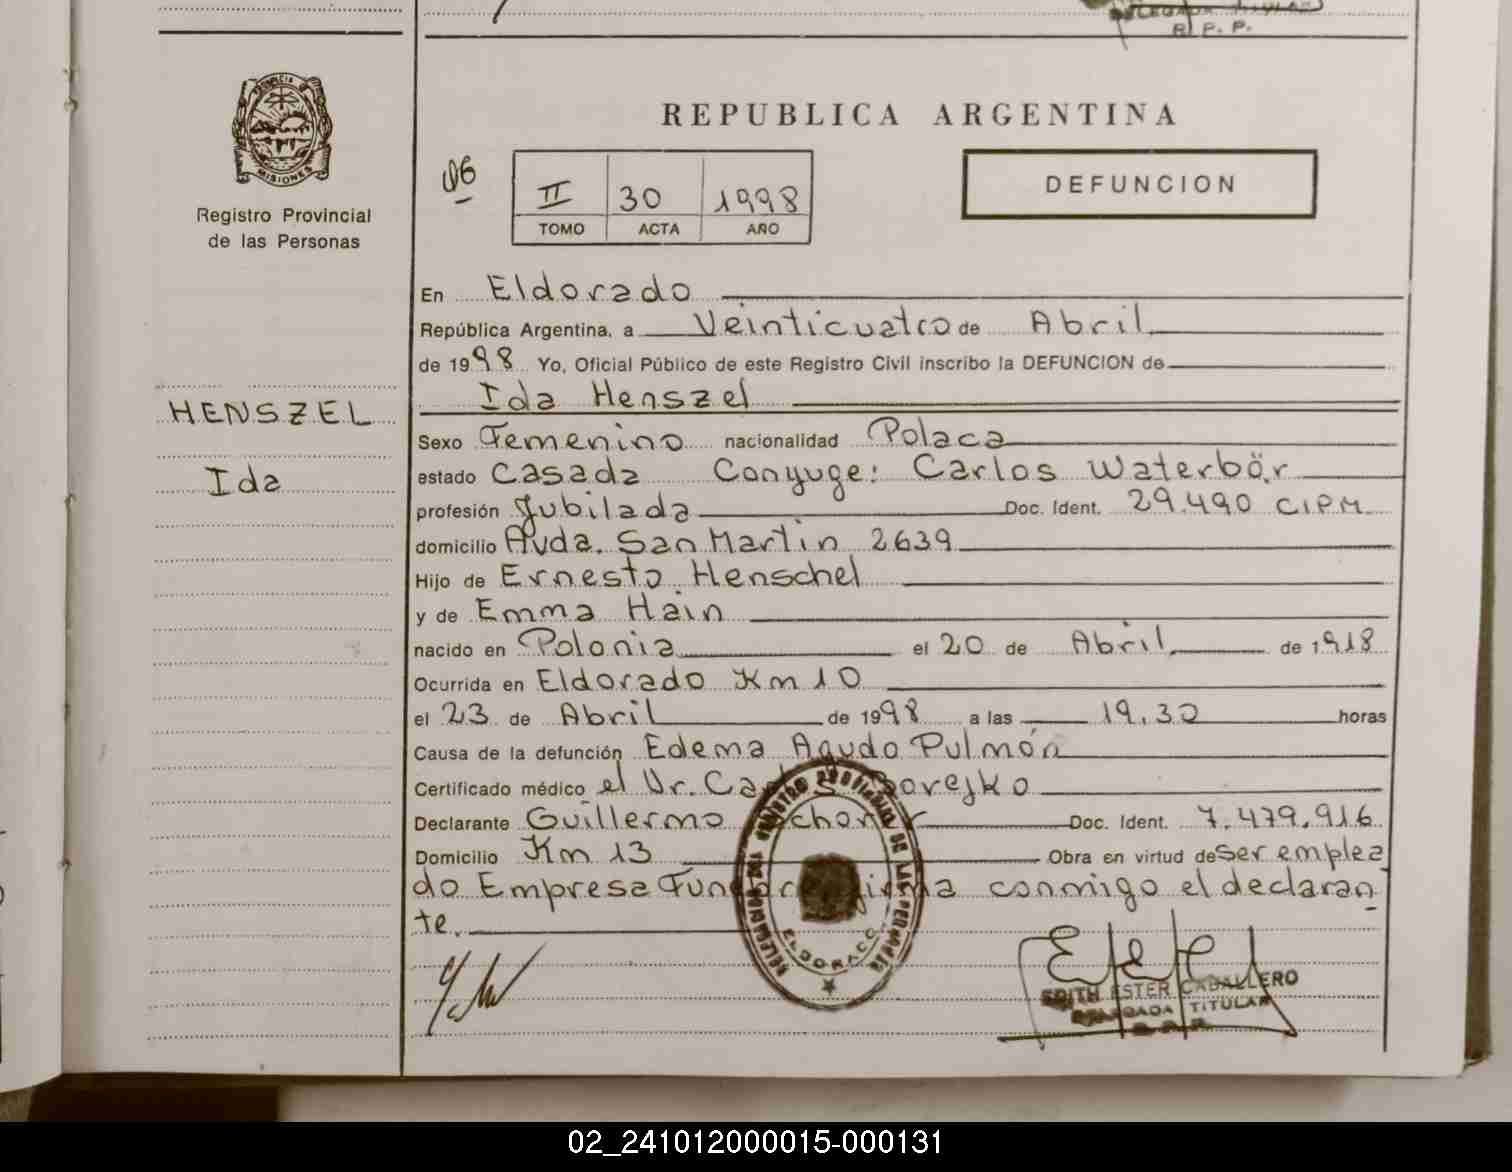 R. P. P.
PROVINCIA DE
MISIONES
Registro Provincial
de las Personas
HENSZEL
Ida
REPUBLICA ARGENTINA
06
II 30 1998
TOMO ACTA AÑO
DEFUNCION
En Eldorado
República Argentina, a Veinticuatro de Abril
de 1998 Yo, Oficial Público de este Registro Civil inscribo la DEFUNCION de
Ida Henszel
Sexo Femenino nacionalidad Polaca
estado Casada Conyuge: Carlos Waterbör
profesión Jubilada Doc. Ident. 29.490 C.I.P.M.
domicilio Avda. San Martin 2639
Hijo de Ernesto Henschel
y de Emma Hain
nacido en Polonia el 20 de Abril de 1918
Ocurrida en Eldorado Km 10
el 23 de Abril de 1998 a las 19.30 horas
Causa de la defunción Edema Agudo Pulmón
Certificado médico el Dr.
Declarante Guillermo Doc. Ident. 7.479.916
Domicilio Km 13 Obra en virtud de ser emplea
do Empresa Funebre firma conmigo el declaran
te.
DELEGACION DEL REGISTRO PROVINCIAL DE LAS PERSONAS
ELDORADO
EDITH ESTER CABALLERO
DELEGADA TITULAR
R. P. P.
02_241012000015-000131